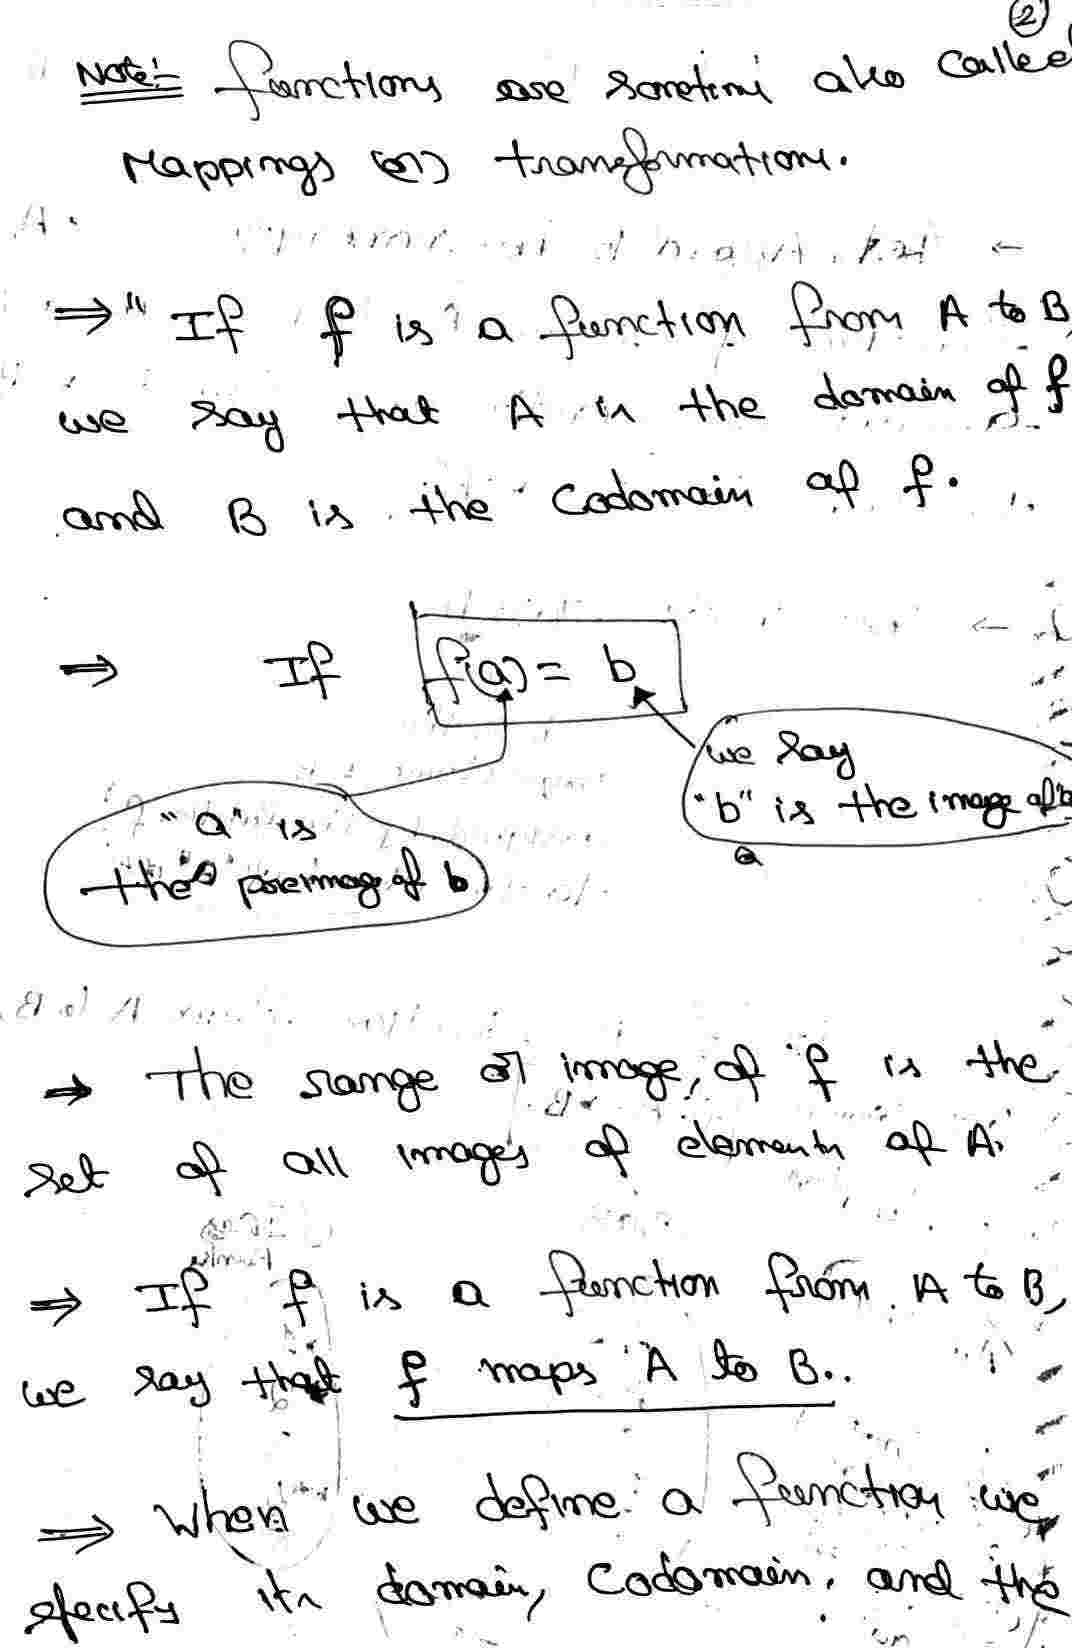 ②
Note:- functions are sometimes also called
Mappings (or) transformations.
⇒ "If f is a function from A to B,
we say that A is the domain of f
and B is the Codomain of f.
⇒ If f(a) = b
we say
"b" is the image of "a
a
"a" is
the preimage of b
⇒ The range or image, of f is the
set of all images of elements of A.
⇒ If f is a function from A to B,
we say that f maps A to B.
⇒ When we define a function we
specify its domain, Codomain, and the